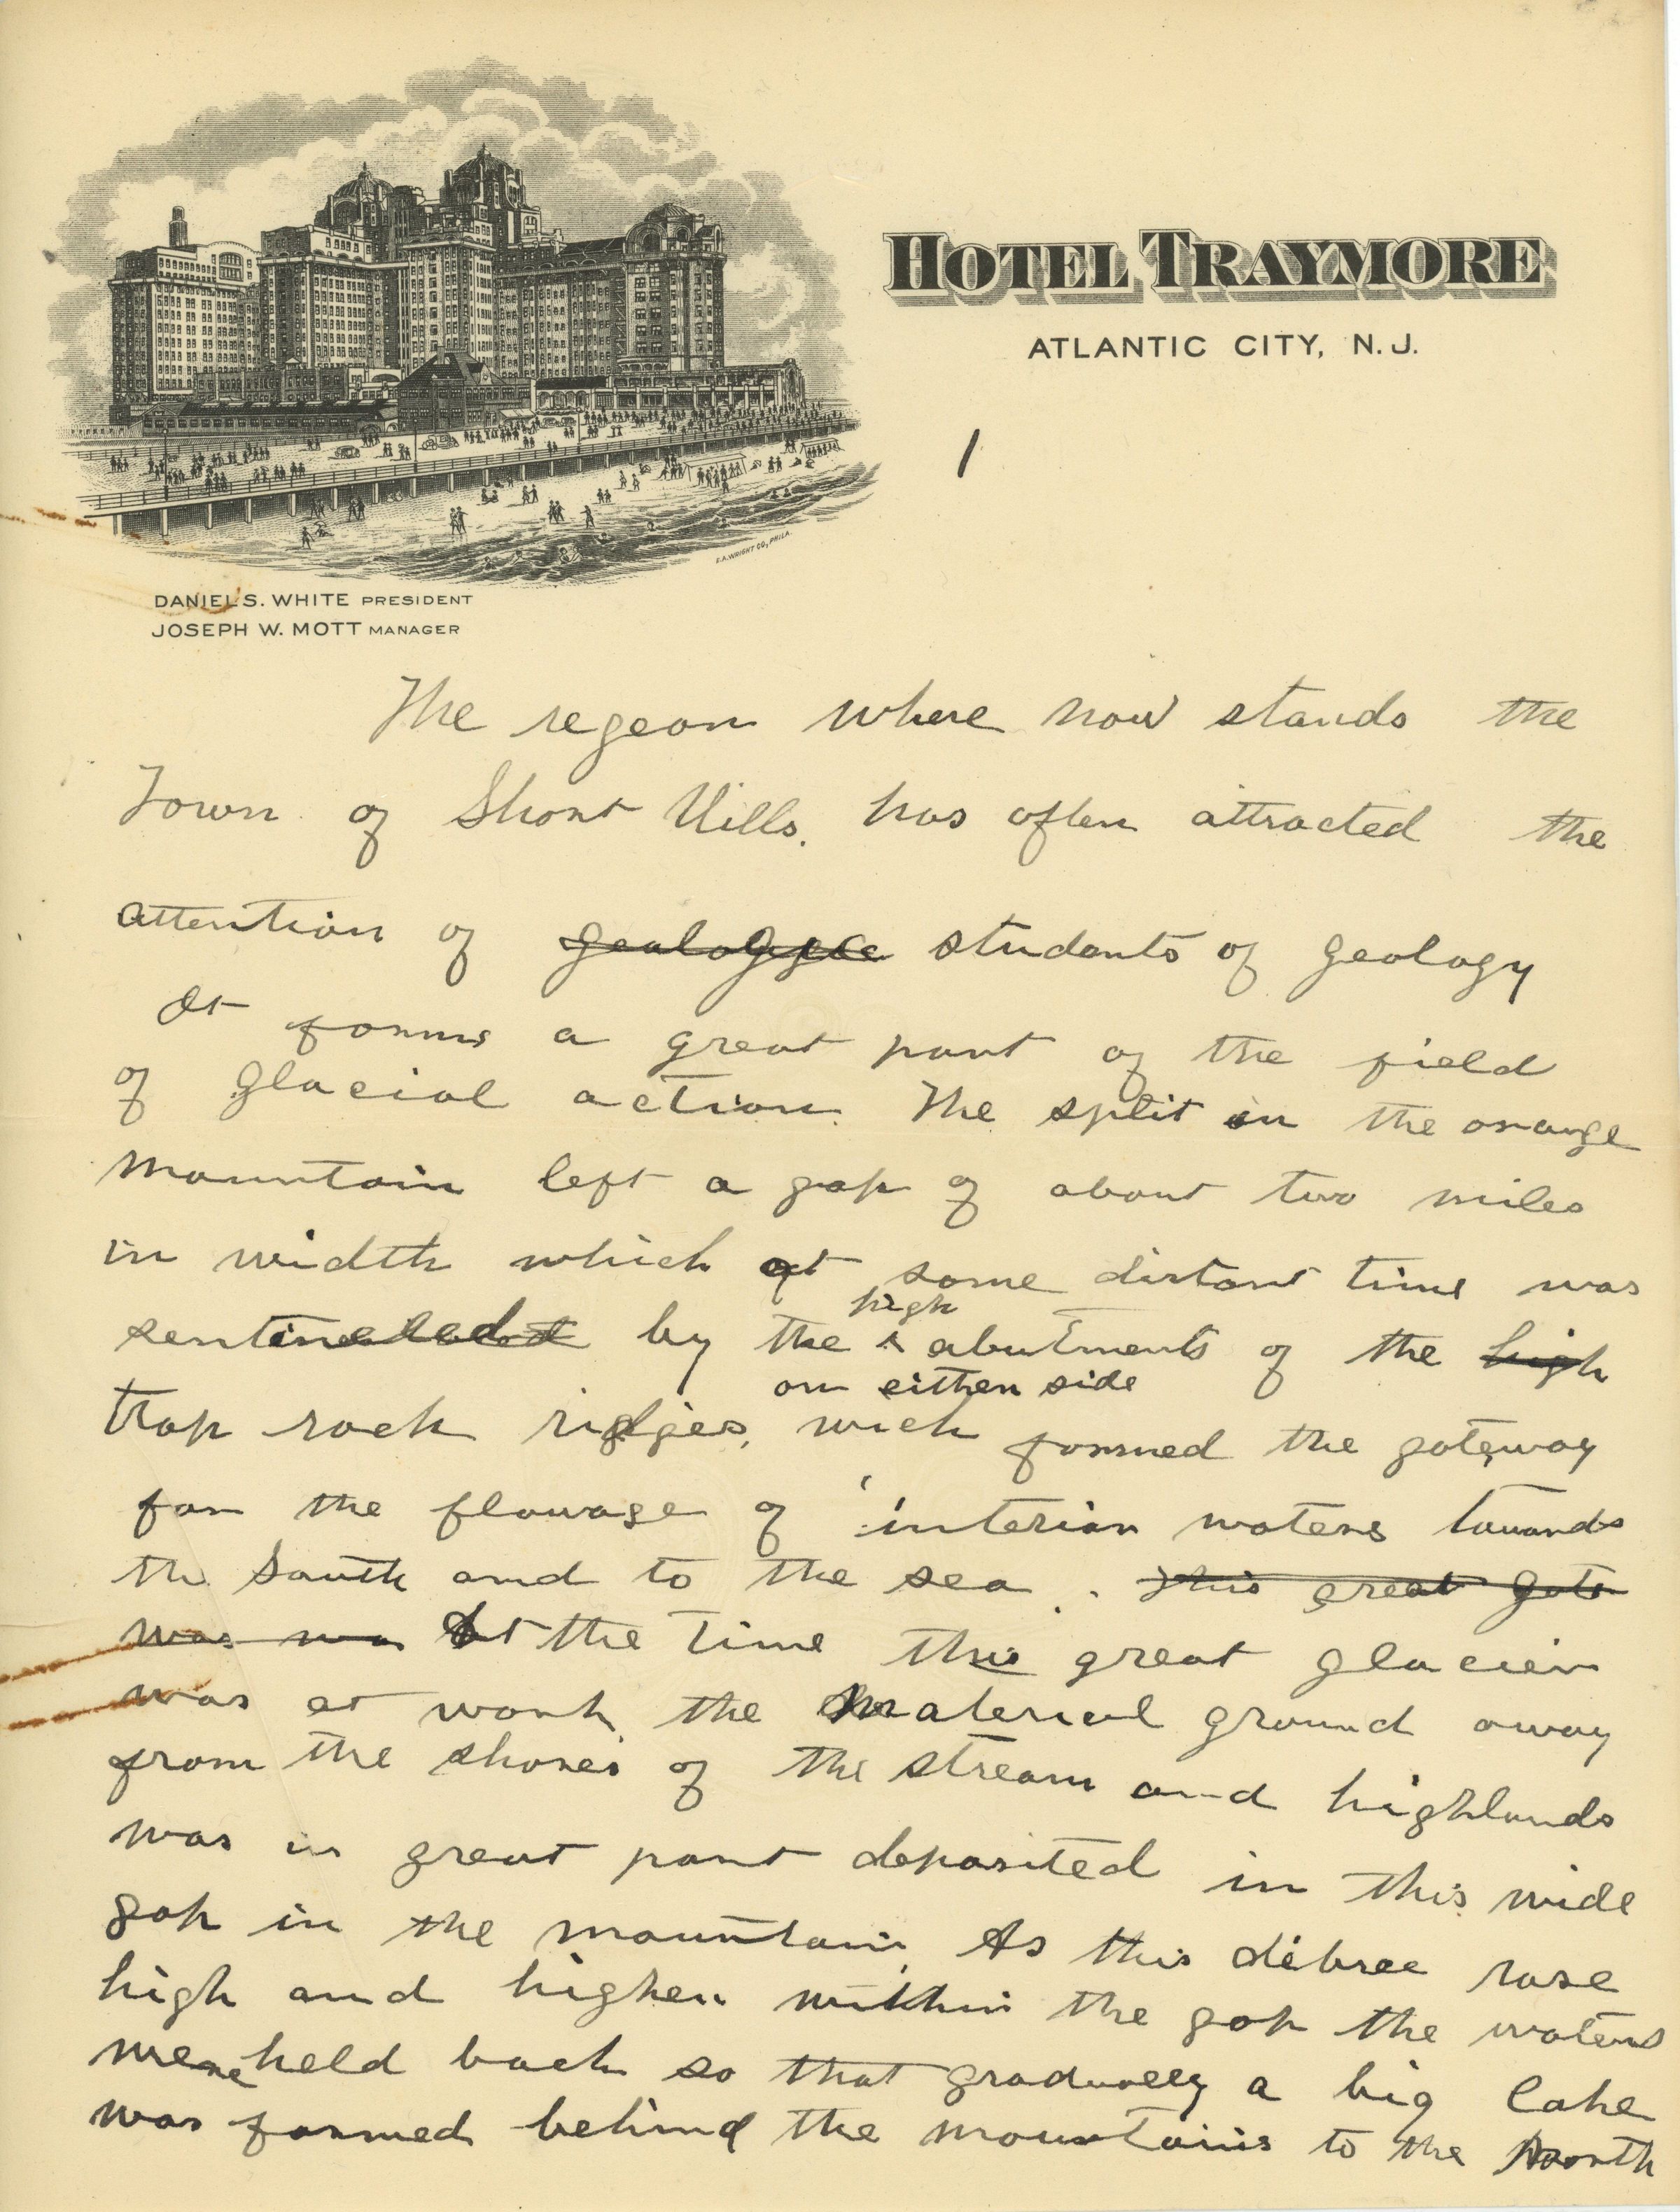 HOTEL TRAYMORE
ATLANTIC CITY, N.J.
1
F.A. WRIGHT CO., PHILA.
DANIEL S. WHITE PRESIDENT
JOSEPH W. MOTT MANAGER
The regeon where now stands the
Town of Short Hills. has often attracted the
attention of students of geology
It forms a great part of the field
of glacial action. The split in the orange
mountain left a gap of about two miles
in width which at some distant time was
high
sentineled by the ^ abutments of the high
on either side
trap rock ridges, wich formed the gateway
for the flowage of interior waters towards
the South and to the sea. This great gate
was was At the time this great glacier
was at work the material ground away
from the shores of the stream and highlands
was in great part deposited in this wide
gap in the mountain. As this debree rose
high and higher within the gap the waters
were held back so that gradually a big lake
was formed behind the mountains to the North